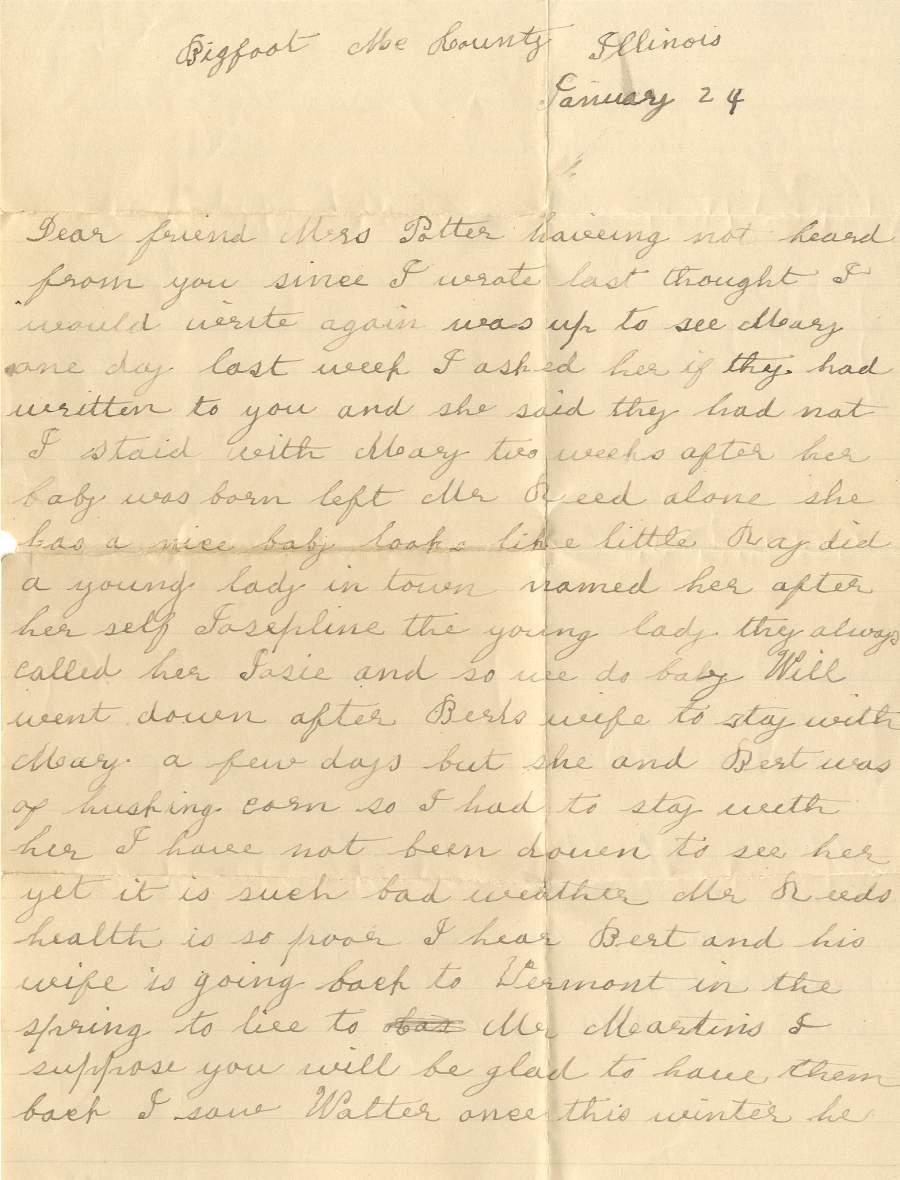 Bigfoot Mc County Illinois
January 24
Dear friend Mrs Potter haveing not heard
from you since I wrote last thought I
would write again was up to see Mary
one day last week I asked her if thy had
written to you and she said thy had not
I staid with Mary two weeks after her
baby was born left Mr Reed alone she
has a nice baby looks like little Ray did
a young lady in town named her after
her self Josepline the young lady thy always
called her Josie and so we do baby Will
went down after Berts wife to stay with
Mary a few days but she and Bert was
of husking corn so I had to stay with
her I have not been down to see her
yet it is such bad weather Mr Reeds
health is so poor I hear Bert and his
wife is going back to Vermont in the
spring to live to Mr Martins I
suppose you will be glad to have them
back I saw Walter once this winter he